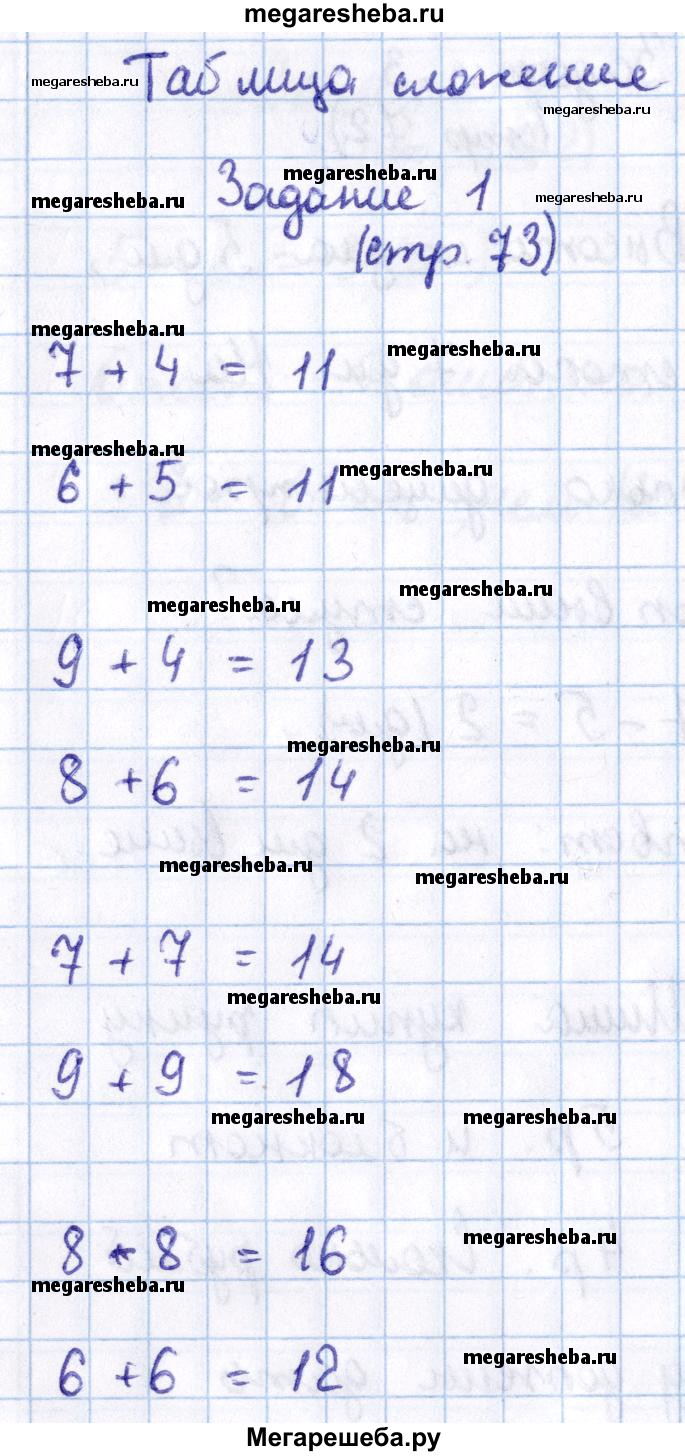 megaresheba.ru
Таблица сложения
megaresheba.ru
megaresheba.ru
megaresheba.ru
megaresheba.ru
Задание 1
megaresheba.ru
(стр. 73)
megaresheba.ru
megaresheba.ru
7 + 4 = 11
megaresheba.ru
megaresheba.ru
6 + 5 = 11
megaresheba.ru
megaresheba.ru
9 + 4 = 13
megaresheba.ru
8 + 6 = 14
megaresheba.ru
megaresheba.ru
7 + 7 = 14
megaresheba.ru
9 + 9 = 18
megaresheba.ru
megaresheba.ru
megaresheba.ru
8 + 8 = 16
megaresheba.ru
megaresheba.ru
6 + 6 = 12
Мегарешеба.ру